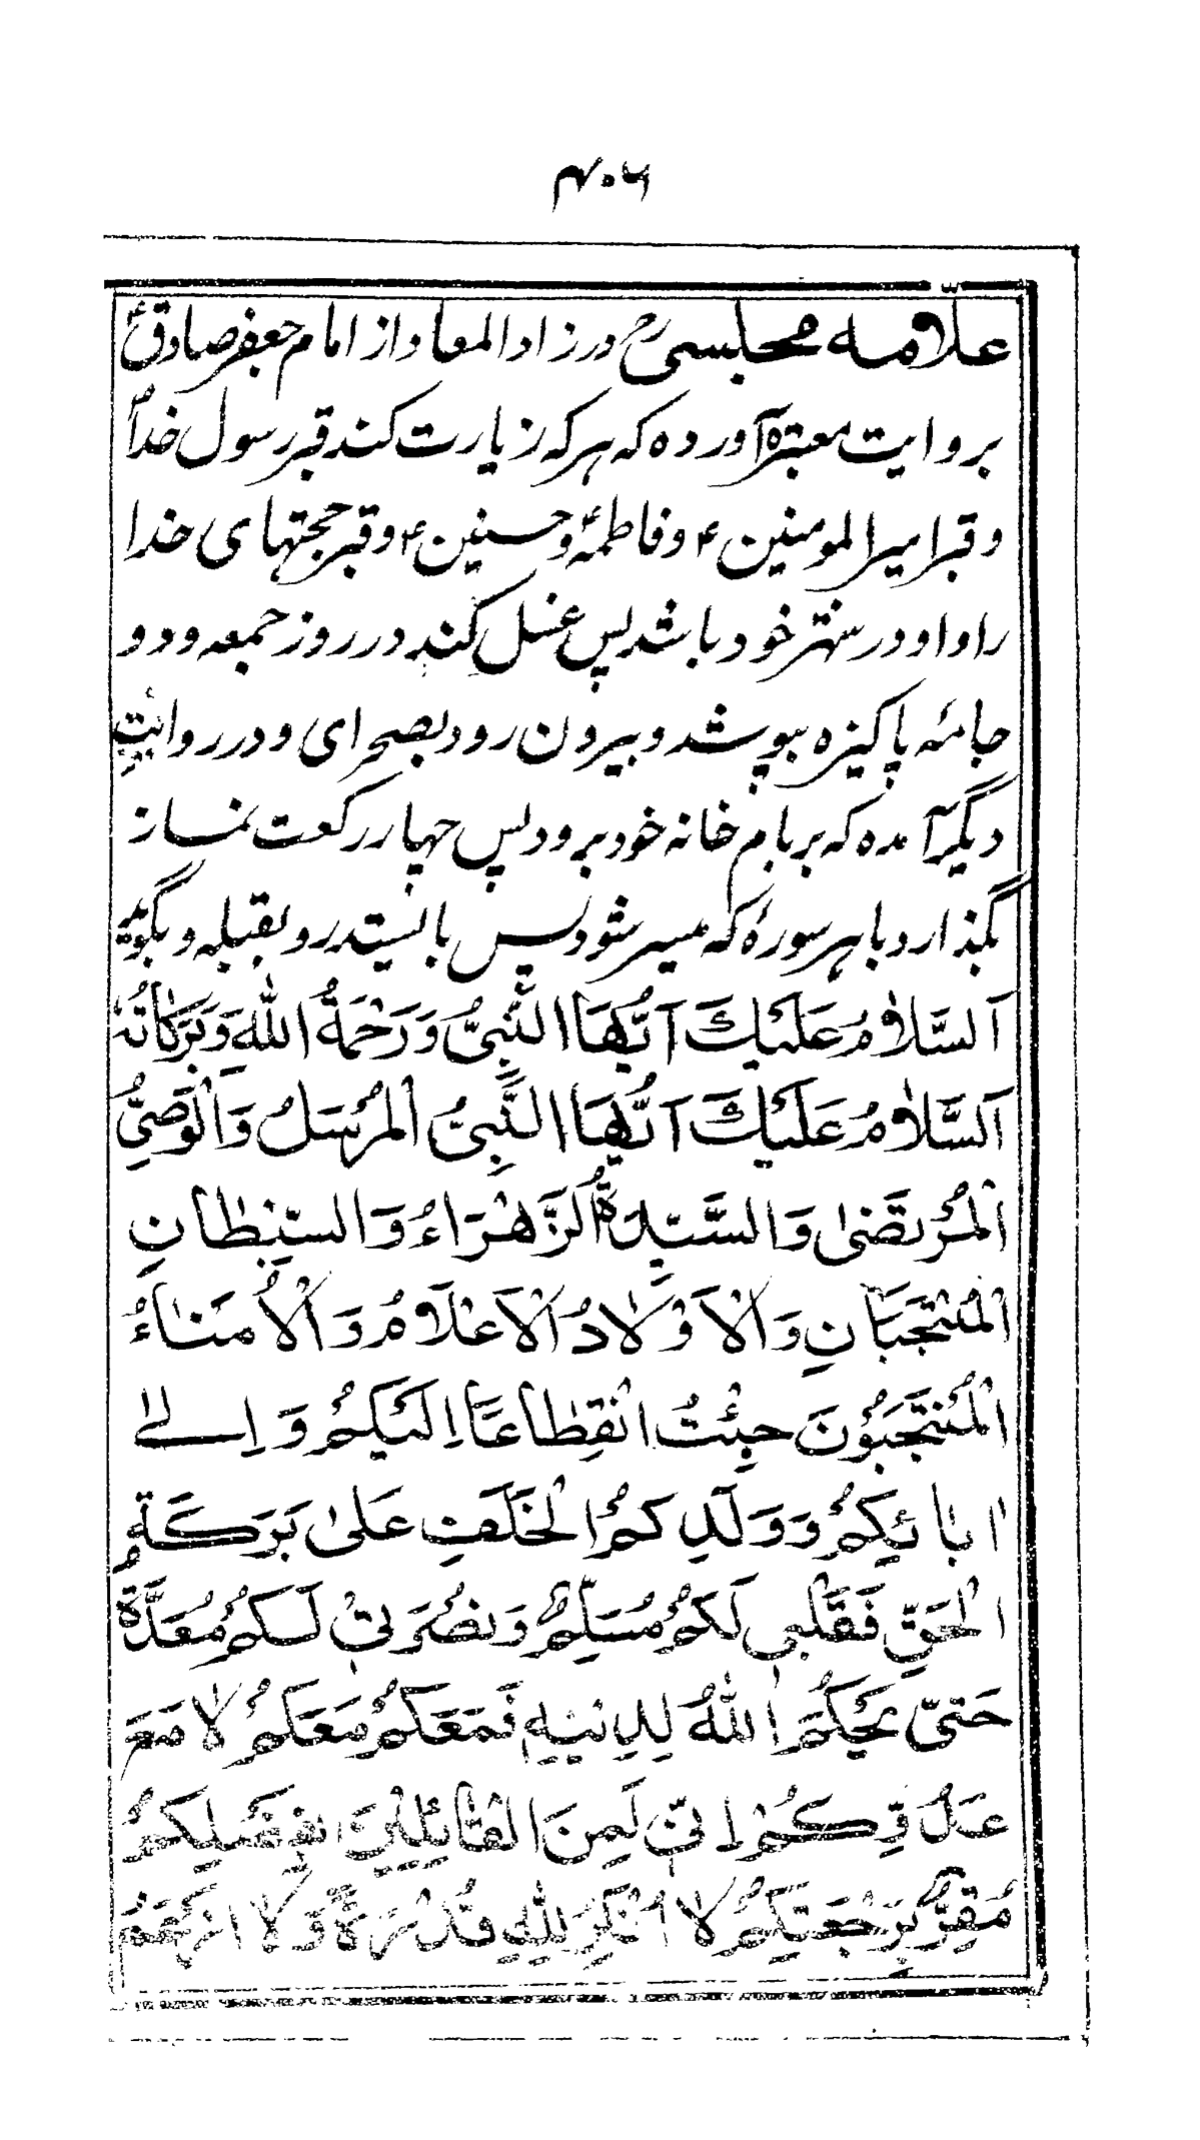 ۴۰۶
علامه مجلسی رح در زاد المعاد از امام جعفر صادق ع
بروایت معتبره آورده که هر که زیارت کند قبر رسول خدا ص
و قبر امیر المومنین ع و فاطمه ع و حسنین ع و قبر حجتهای خدا
را و او در شهر خود باشد پس غسل کند در روز جمعه و دو
جامۀ پاکیزه بپوشد و بیرون رود بصحرای و در روایت
دیگر آمده که بر بام خانه خود برود پس چهار رکعت نماز
بگذارد با هر سورۀ که میسر شود پس بایستد رو بقبله و بگوید
اَلسَّلَامُ عَلَیْكَ اَیُّهَا النَّبِیُّ وَرَحْمَةُ اللهِ وَبَرَکَاتُهٗ
اَلسَّلَامُ عَلَیْكَ اَیُّهَا النَّبِیُّ الْمُرْسَلُ وَالْوَصِیُّ
الْمُرْتَضٰی وَالسَّیِّدَةُ الزَّهْرَاءُ وَالسِّبْطَانِ
الْمُنْتَجَبَانِ وَالْاَوْلَادُ الْاَعْلَامُ وَالْاُمَنَاءُ
الْمُنْتَجَبُوْنَ جِئْتُ انْقِطَاعًا اِلَیْکُمْ وَ اِلٰی
اٰبَائِکُمْ وَوَلَدِکُمُ الْخَلَفِ عَلٰی بَرَکَةِ
الْحَقِّ فَقَلْبِی لَکُمْ مُسَلِّمٌ وَنُصْرَتِیْ لَکُمْ مُعَدَّةٌ
حَتّٰی یَحْکُمَ اللهُ لِدِیْنِهِ فَمَعَکُمْ مَعَکُمْ لَا مَعَ
عَدُوِّکُمْ اِنِّیْ لَمِنَ الْقَائِلِیْنَ بِفَضْلِکُمْ
مُقِرٌّ بِرَجْعَتِکُمْ لَا اُنْکِرُ لِلّٰهِ قُدْرَةً وَلَا اَزْعَمُ